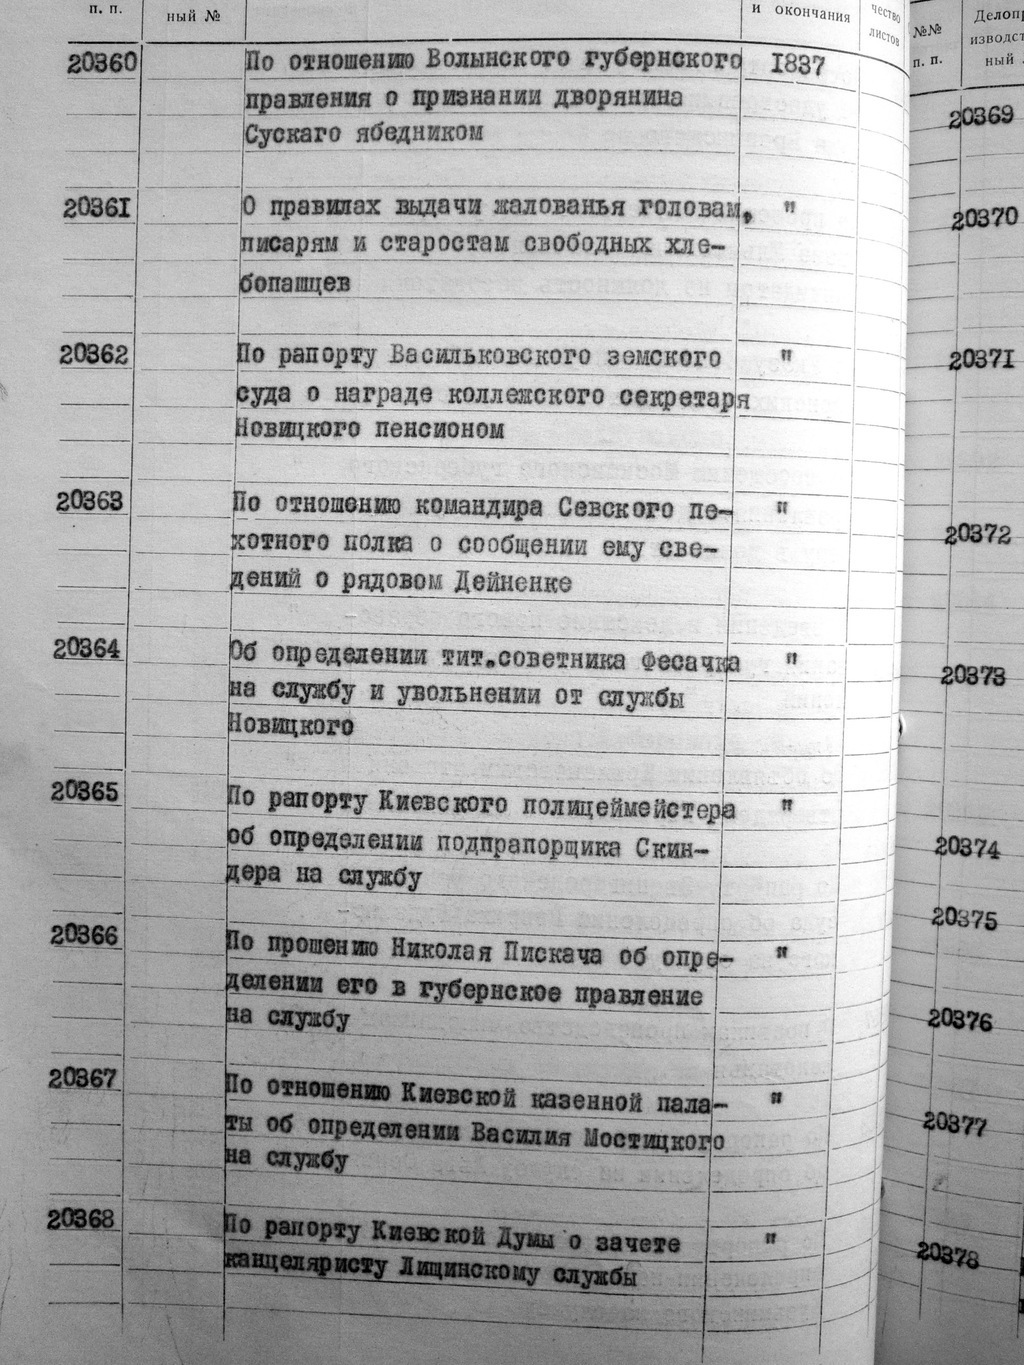 п. п.
ный №
и окончания
чество
листов
20360
По отношению Волынского губернского
1837
правления о признании дворянина
Сускаго ябедником
20361
О правилах выдачи жалованья головам,
"
писарям и старостам свободных хле-
бопашцев
20362
По рапорту Васильковского земского
"
суда о награде коллежского секретаря
Новицкого пенсионом
20363
По отношению командира Севского пе-
"
хотного полка о сообщении ему све-
дений о рядовом Дейненке
20364
Об определении тит.советника Фесачка
"
на службу и увольнении от службы
Новицкого
20365
По рапорту Киевского полицеймейстера
"
об определении подпрапорщика Скин-
дера на службу
20366
По прошению Николая Пискача об опре-
"
делении его в губернское правление
на службу
20367
По отношению Киевской казенной пала-
"
ты об определении Василия Мостицкого
на службу
20368
По рапорту Киевской Думы о зачете
"
канцеляристу Лищинскому службы
№№
п. п.
Делопр
изводст
ный
20369
20370
20371
20372
20373
20374
20375
20376
20377
20378